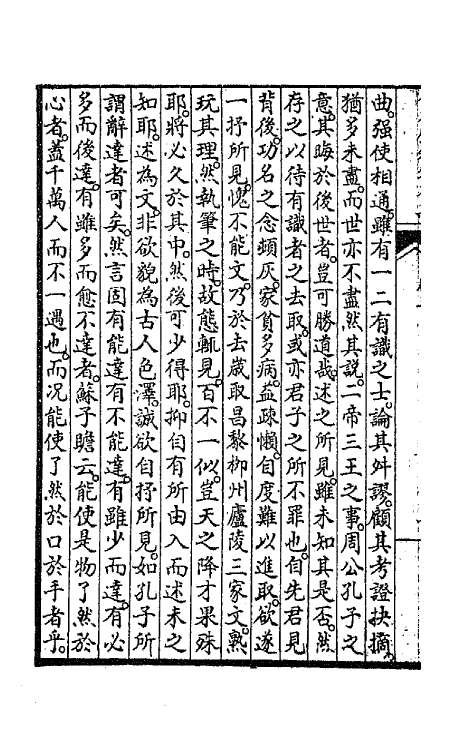 曲。强使相通。雖有一二有識之士。論其舛謬。顧其考證抉摘。
猶多未盡。而世亦不盡然其說。二帝三王之事。周公孔子之
意。其晦於後世者。豈可勝道哉。述之所見。雖未知其是否。然
存之以待有識者之去取。或亦君子之所不罪也。自先君見
背後。功名之念頓灰。家貧多病。益疎懶。自度難以進取。欲遂
一抒所見。愧不能文。乃於去歲取昌黎柳州廬陵三家文。熟
玩其理。然執筆之時。故態輒見。百不一似。豈天之降才果殊
耶。將必久於其中。然後可少得耶。抑自有所由入而述未之
如耶。述為文。非欲貌為古人色澤。誠欲自抒所見。如孔子所
謂辭達者可矣。然言固有能達有不能達。有雖少而達。有必
多而後達。有雖多而愈不達者。蘇子瞻云。能使是物了然於
心者。葢千萬人而不一遇也。而况能使了然於口於手者乎。